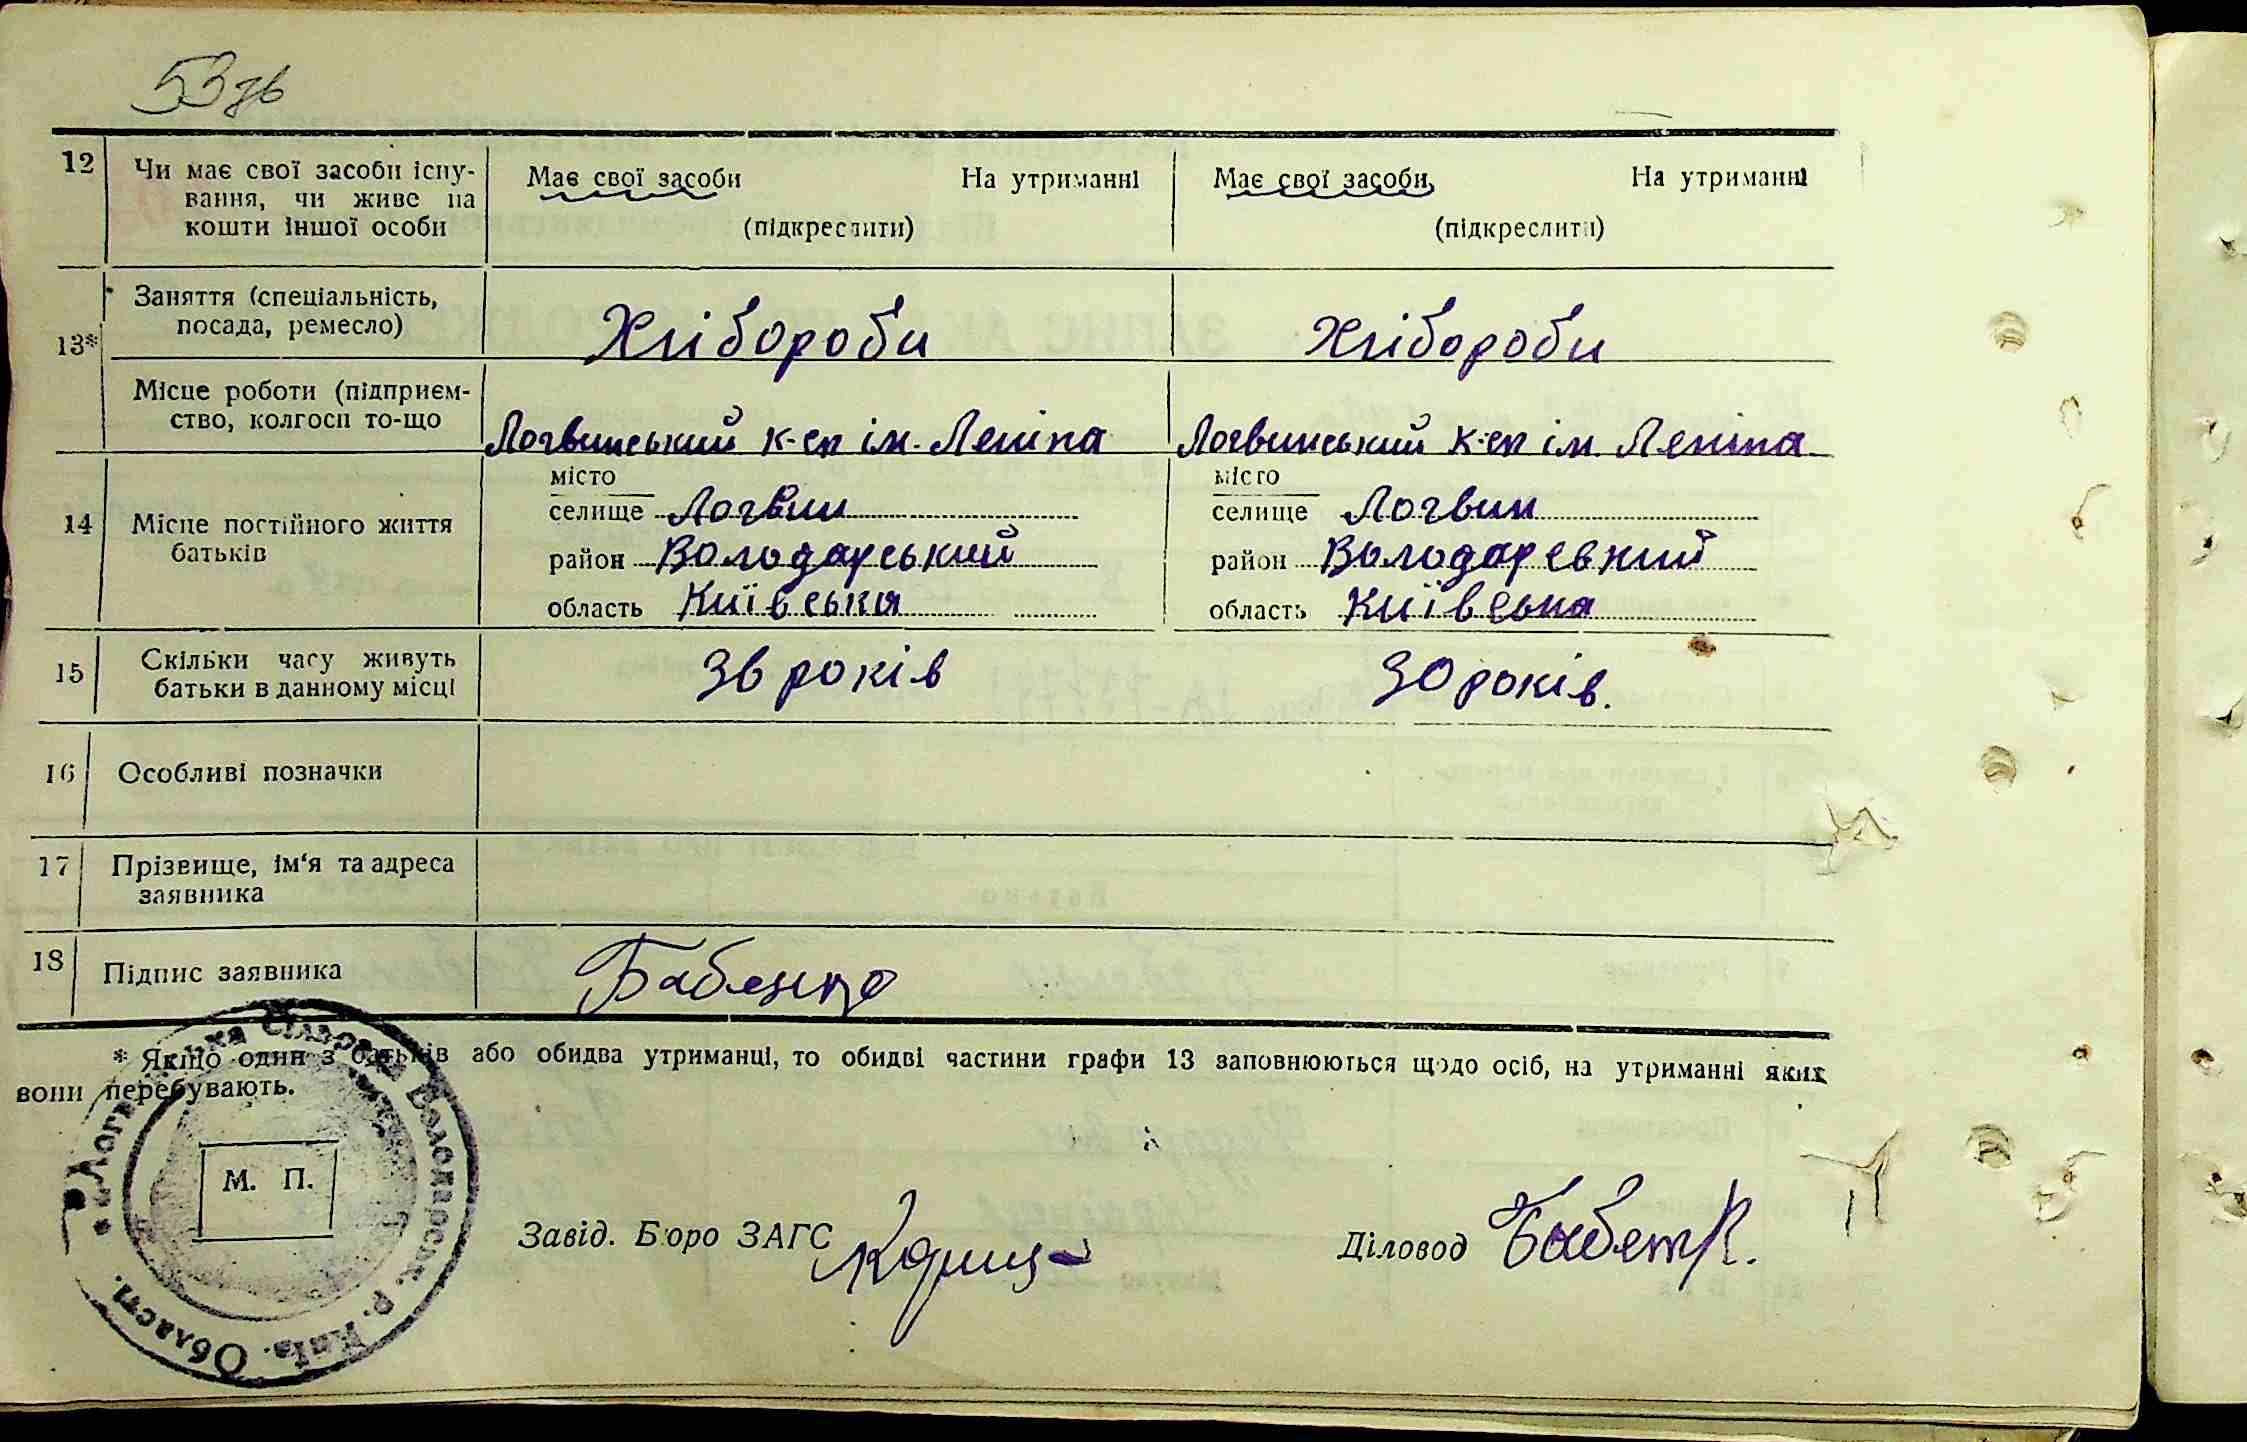 53зв
12 Чи має свої засоби існу-
вання, чи живе на
кошти іншої особи
Має свої засоби На утриманні
(підкреслити)
Має свої засоби На утриманні
(підкреслити)
13* Заняття (спеціальність,
посада, ремесло)
Хлібороби Хлібороби
Місце роботи (підприєм-
ство, колгосп то-що
Логвинський к-сп ім. Леніна Логвинський к-сп ім. Леніна
14 Місце постійного життя
батьків
місто
селище Логвин
район Володарський
область Київська
місто
селище Логвин
район Володарський
область Київська
15 Скільки часу живуть
батьки в данному місці
36 років 30 років.
16 Особливі позначки
17 Прізвище, ім‘я та адреса
заявника
18 Підпис заявника Бабенко
* Якщо один з батьків або обидва утриманці, то обидві частини графи 13 заповнюються щодо осіб, на утриманні яких
вони перебувають.
М. П.
Завід. Бюро ЗАГС
Діловод
Сільрада Володарськ. р. Київ. Області.